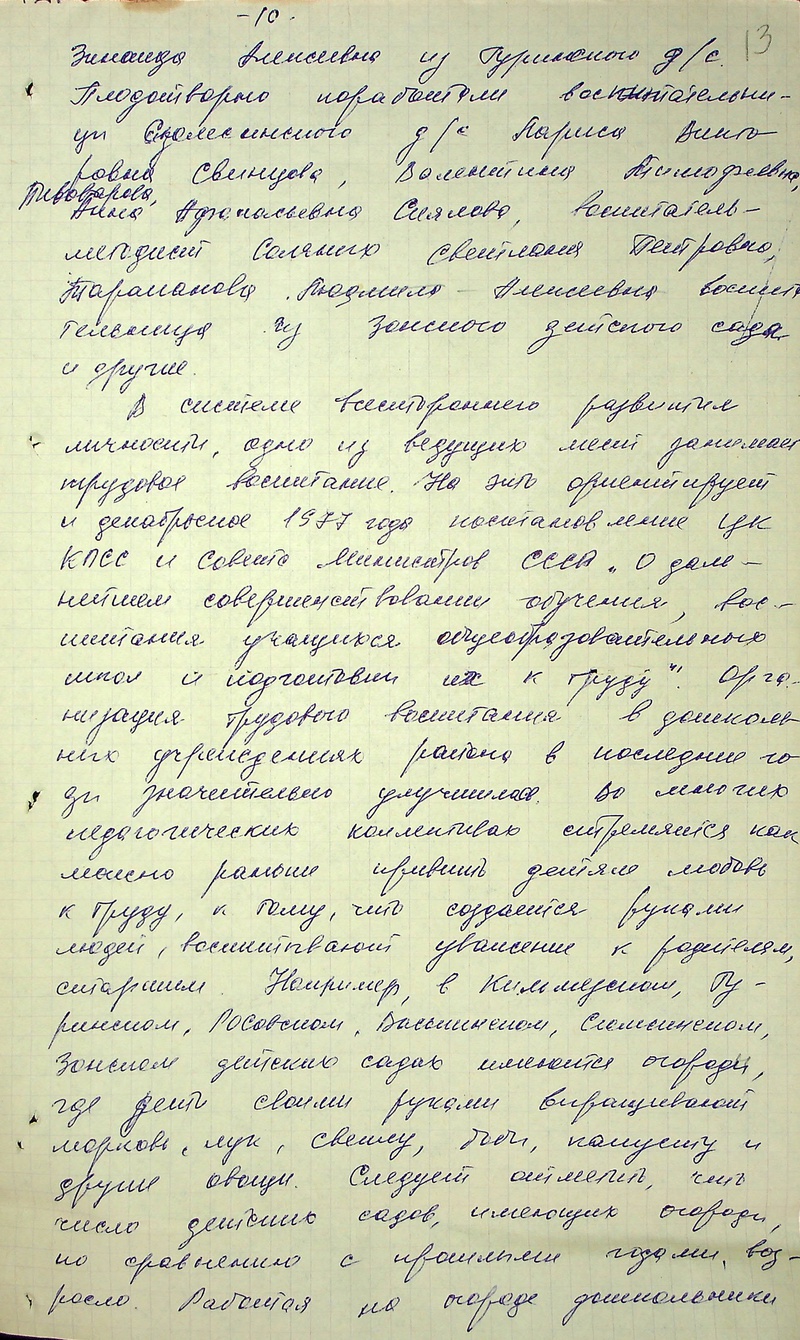 -10.
13
Зинаида Алексеевна из Гуринского д/с.
Плодотворно поработали воспитательни-
цы Сюмсинского д/с Лариса Викто
ровна Свинцова, Валентина Тимофеевна,
Пивоварова,
Анна Афанасьевна Сиялова, воспитатель-
методист Саляних Светлана Петровна,
Тараканова Людмила Алексеевна воспита
тельница из Зонского детского сада
и другие.
В системе всестороннего развития
личности, одно из ведущих мест занимает
трудовое воспитание. На это ориентирует
и декабрьское 1977 года постановление ЦК
КПСС и Совета Министров СССР „О даль-
нейшем совершенствовании обучения, вос-
питания учащихся общеобразовательных
школ и подготовки их к труду". Орга-
низация трудового воспитания в дошколь-
ных учреждениях района в последние го
ды значительно улучшилась. Во многих
педагогических коллективах стремятся как
можно раньше привить детям любовь
к труду, к тому, что создается руками
людей, воспитывают уважение к родителям,
старшим. Например, в Кильмезском, Гу-
ринском, Васькинском, Сюмсинском,
Зонском детских садах имеются огороды,
где дети своими руками выращивают
морковь, лук, свеклу, бобы, капусту и
другие овощи. Следует отметить, что
число детских садов, имеющих огороды,
по сравнению с прошлыми годами, воз-
росло. Работая на огороде дошкольники